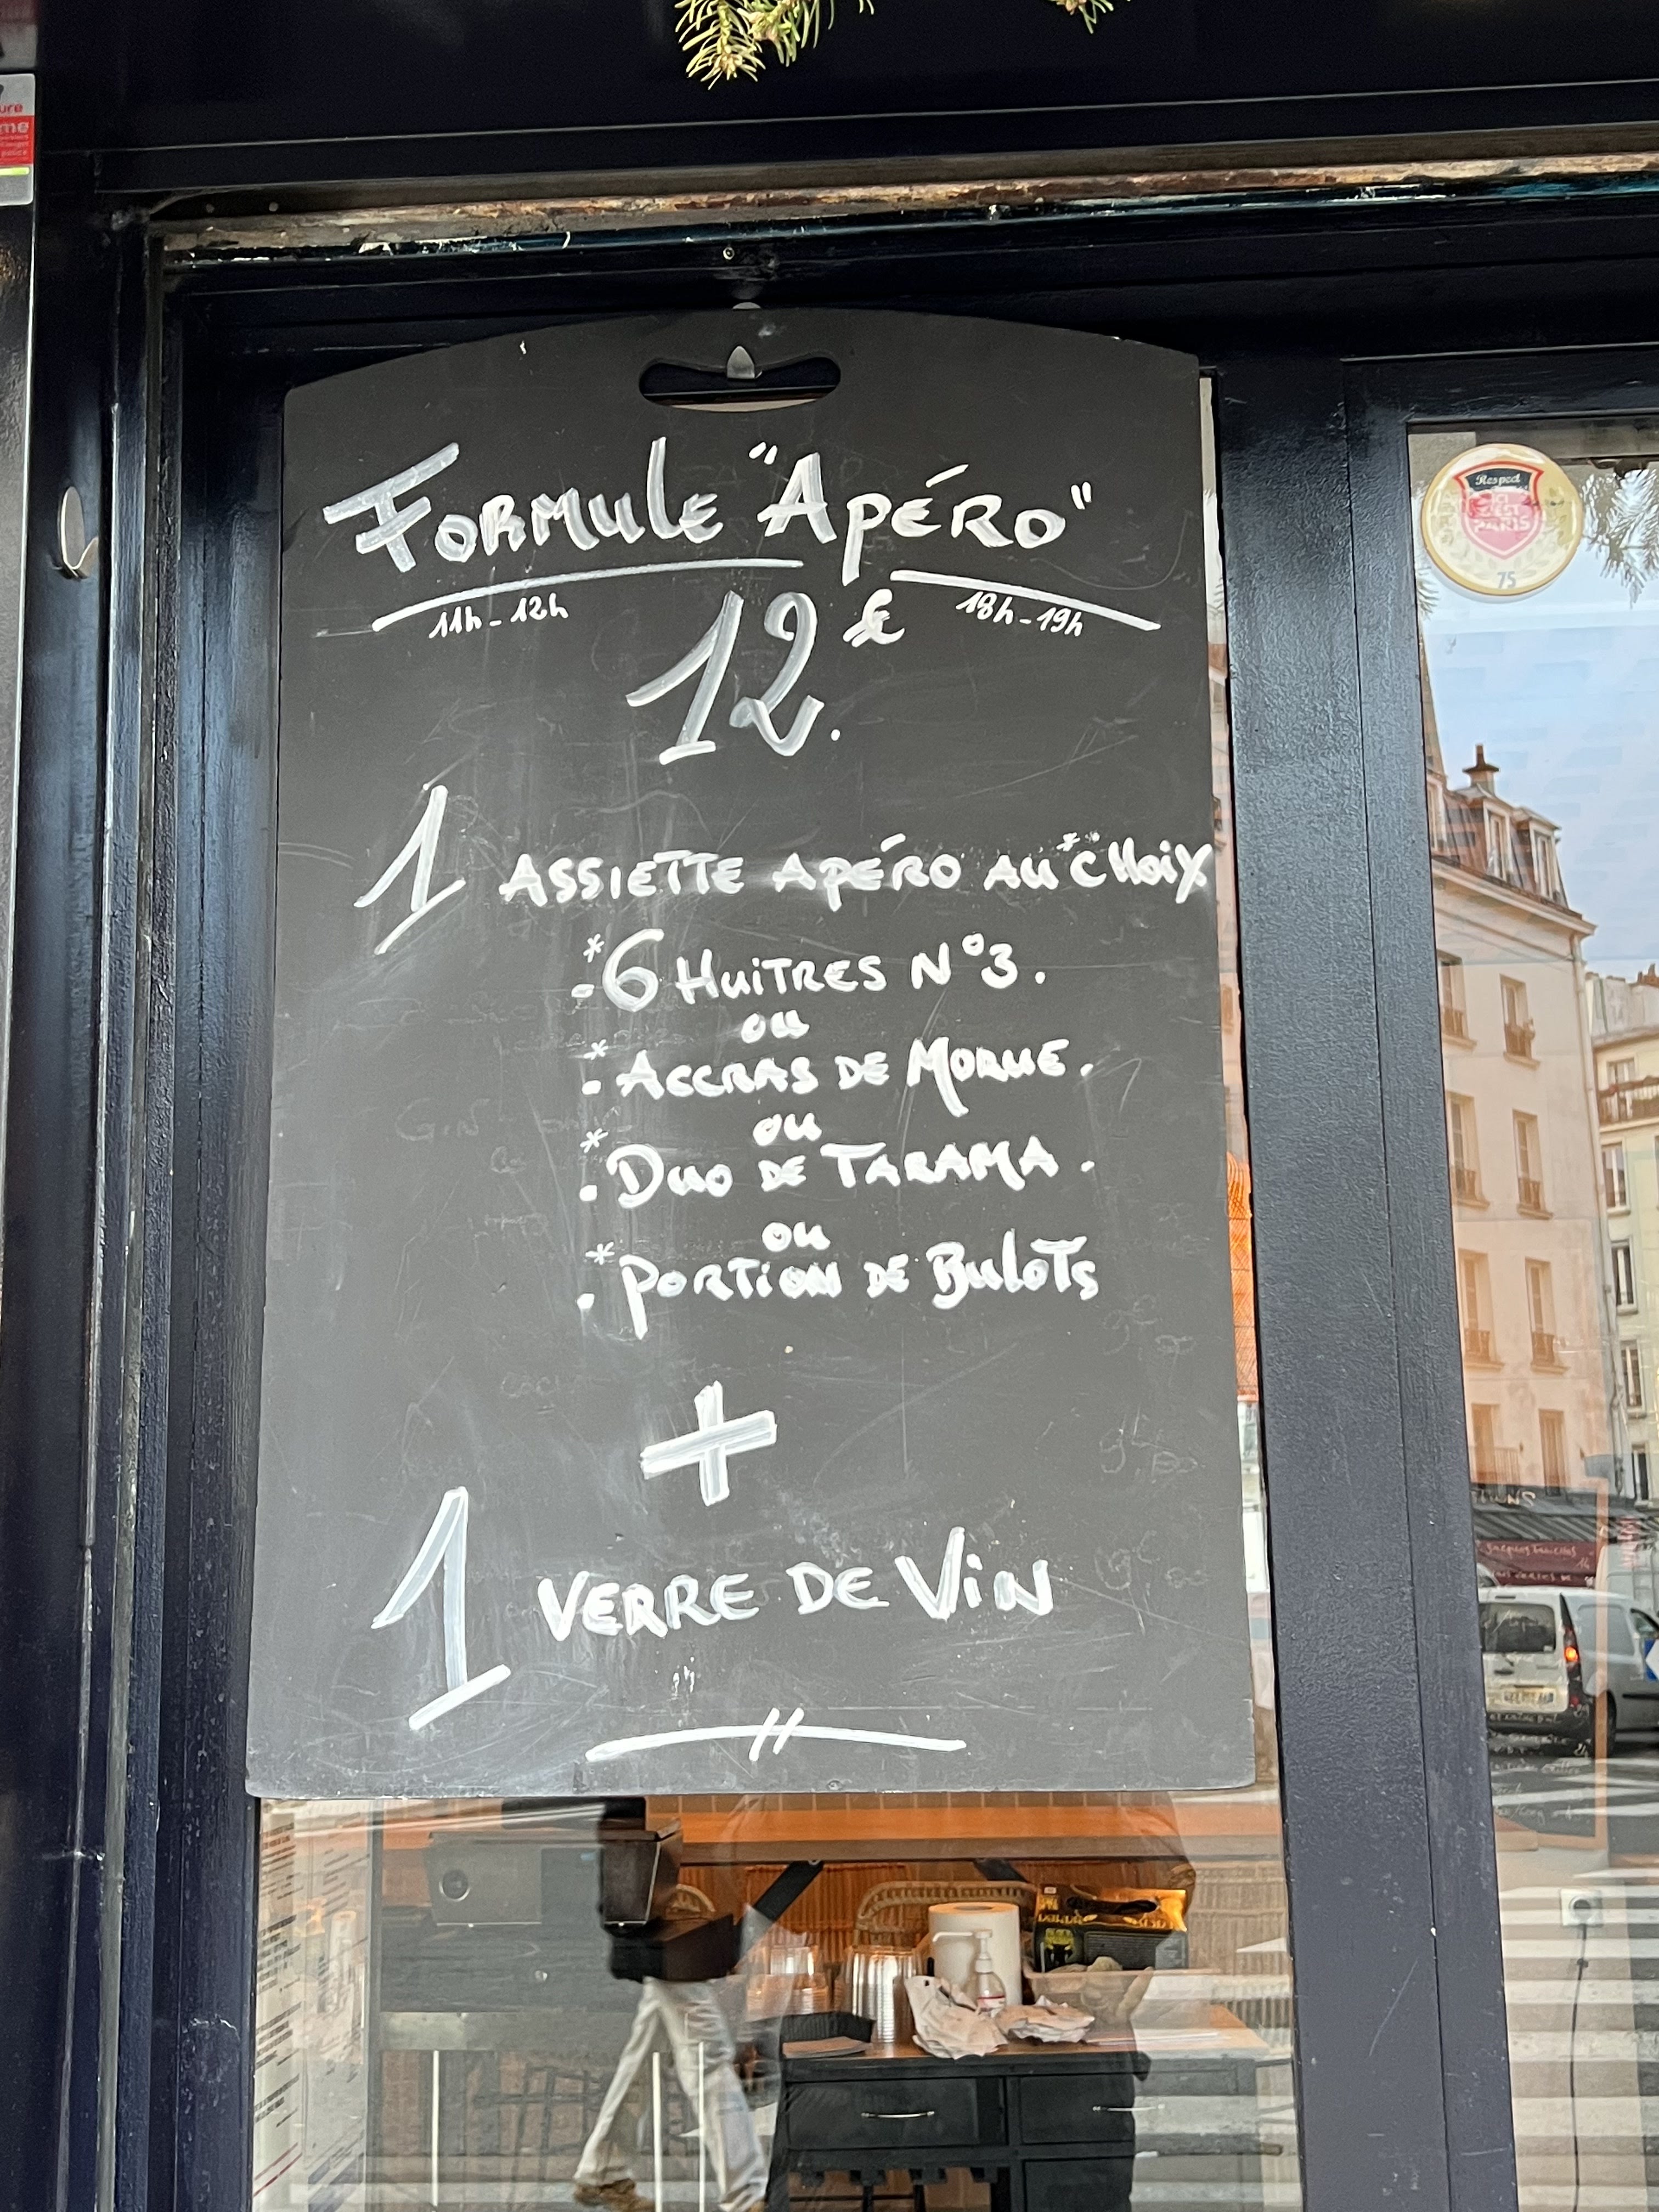 Formule "Apéro"
11h - 12h
18h - 19h
12€.
1 Assiette Apéro au *choix
*- 6 Huitres N°3.
ou
*- Accras de Morue.
ou
*- Duo de Tarama.
ou
*- Portion de Bulots
+
1 Verre de Vin
Respect
ICI
C'EST
PARIS
75